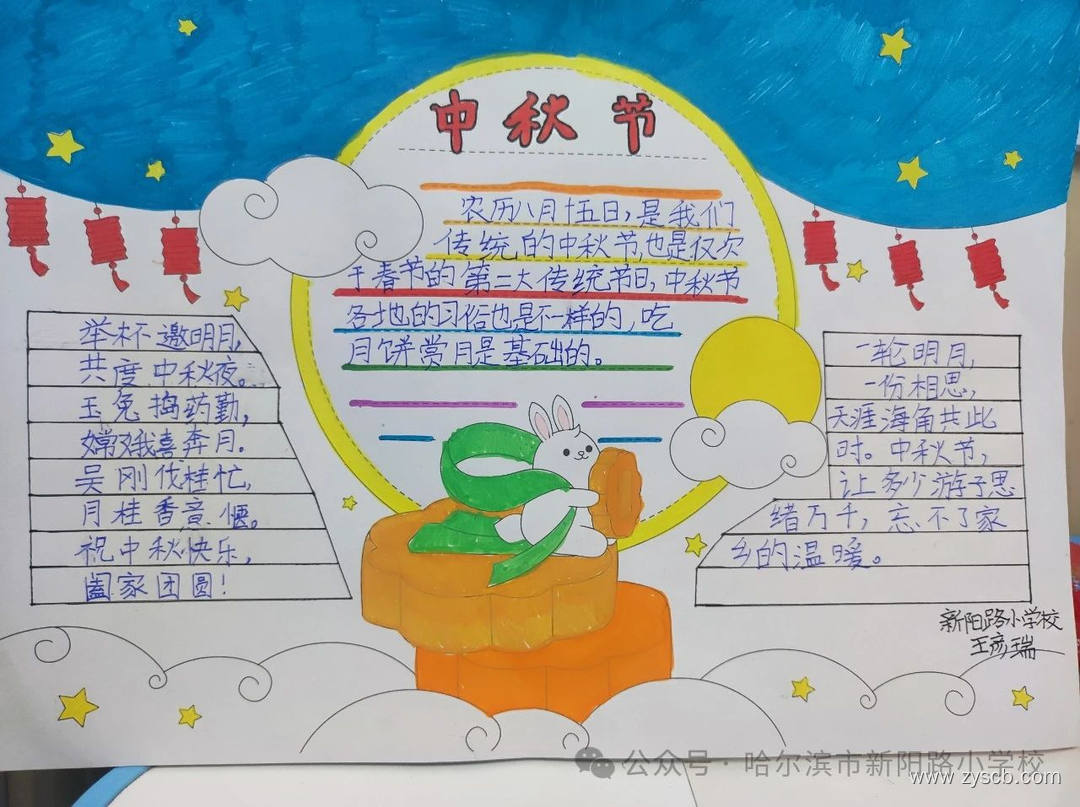 中秋节
农历八月十五日，是我们
传统的中秋节，也是仅次
于春节的第二大传统节日，中秋节
各地的习俗也是不一样的，吃
月饼赏月是基础的。
举杯邀明月，
共度中秋夜。
玉兔捣药勤，
嫦娥喜奔月。
吴刚伐桂忙，
月桂香音惬。
祝中秋快乐，
阖家团圆！
一轮明月，
一份相思，
天涯海角共此
时。中秋节，
让多少游子思
绪万千，忘不了家
乡的温暖。
新阳路小学校
王彦瑞
公众号·哈尔滨市新阳路小学校
www.zyscb.com